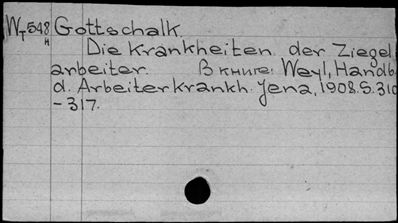 WT548 Gottschalk
н
Die Krankheiten der Ziegel
arbeiter. В книге: Weyl, Handb.
d. Arbeiterkrankh. Jena, 1908. S. 310
-317.